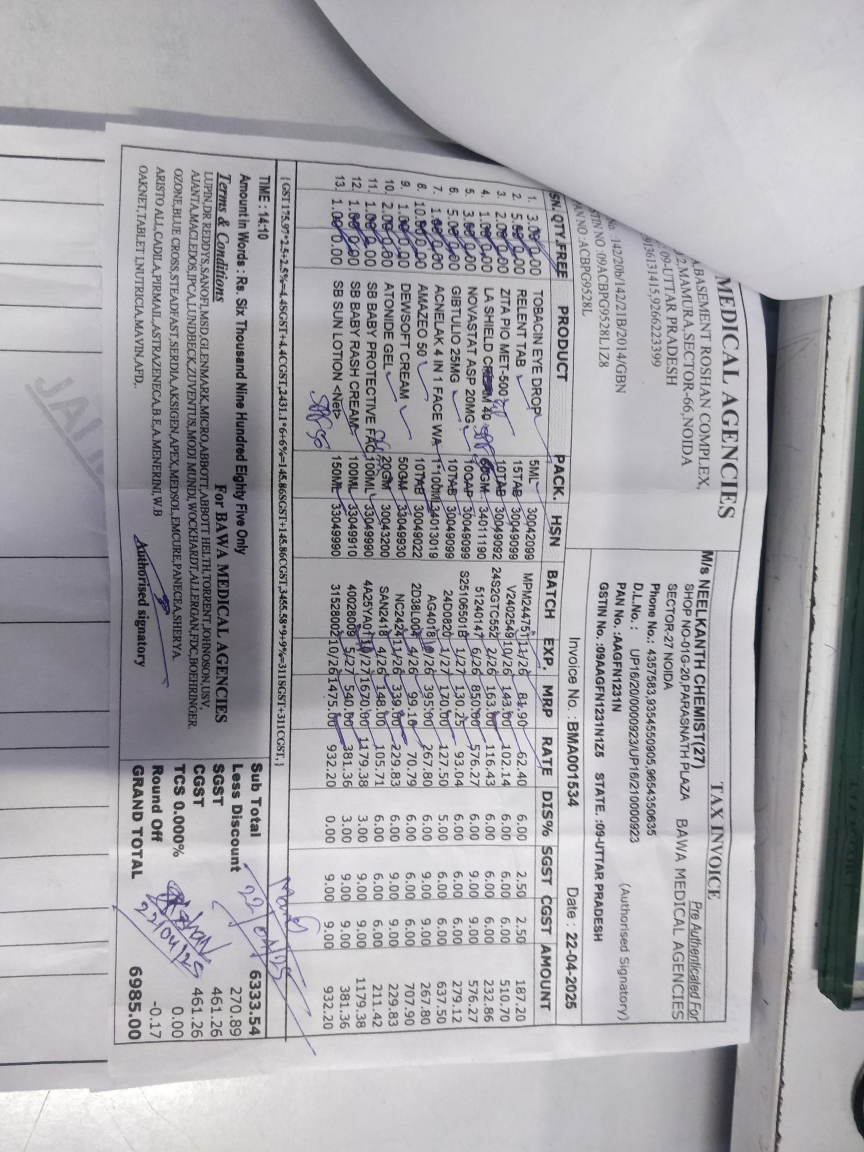 TAX INVOICE
Pre Authenticated For
BAWA MEDICAL AGENCIES
(Authorised Signatory)
MEDICAL AGENCIES
BASEMENT ROSHAN COMPLEX,
MAMURA, SECTOR-66, NOIDA
:09-UTTAR PRADESH
9136131415,9266223399
142/20b/142/21B/2014/GBN
:09ACBPG9528L1Z8
NO :ACBPG9528L
M/s NEELKANTH CHEMIST(27)
SHOP NO-01G-20,PARASNATH PLAZA
SECTOR-27 NOIDA
Phone No.: 4357583,9354550905,9654350635
D.L.No. : UP16/20/0000923/UP16/210000923
PAN No. :AAGFN1231N
GSTIN No. :09AAGFN1231N1Z5 STATE. :09-UTTAR PRADESH
Invoice No. : BMA001534 Date : 22-04-2025
SN. QTY.FREE PRODUCT PACK. HSN BATCH EXP. MRP RATE DIS% SGST CGST AMOUNT
1. 3.00 0.00 TOBACIN EYE DROP 5ML 30042099 MPM24475 11/26 81.90 62.40 6.00 2.50 2.50 187.20
2. 5.00 0.00 RELENT TAB 15TAB 30049099 V2402549 10/26 143.00 102.14 6.00 6.00 6.00 510.70
3. 2.00 0.00 ZITA PIO MET-500 10TAB 30049092 24S2GTC552 2/26 163.00 116.43 6.00 6.00 6.00 232.86
4. 1.00 0.00 LA SHIELD CREAM 40 60GM 34011190 51240147 6/26 850.00 576.27 6.00 9.00 9.00 576.27
5. 3.00 0.00 NOVASTAT ASP 20MG 10CAP 30049099 S25106501B 1/27 130.25 93.04 6.00 6.00 6.00 279.12
6. 5.00 0.00 GIBTULIO 25MG 10TAB 30049099 24D0820 1/27 170.00 127.50 5.00 6.00 6.00 637.50
7. 1.00 0.00 ACNELAK 4 IN 1 FACE WA 1*100ML 34013019 AG4018 10/26 395.00 267.80 6.00 9.00 9.00 267.80
8. 10.00 0.00 AMAZEO 50 10TAB 30049022 2D38L004 4/26 99.10 70.79 6.00 6.00 6.00 707.90
9. 1.00 0.00 DEWSOFT CREAM 50GM 33049930 NC2424 11/26 339.00 229.83 6.00 9.00 9.00 229.83
10. 2.00 0.00 ATONIDE GEL 20GM 30043200 SAN2418 4/26 148.00 105.71 6.00 6.00 6.00 211.42
11. 1.00 0.00 SB BABY PROTECTIVE FAC 100ML 33049990 4A25YA011 10/27 1670.00 1179.38 3.00 9.00 9.00 1179.38
12. 1.00 0.00 SB BABY RASH CREAM 100ML 33049910 40028009 5/27 540.00 381.36 3.00 9.00 9.00 381.36
13. 1.00 0.00 SB SUN LOTION <Net> 150ML 33049990 31528002 10/26 1475.00 932.20 0.00 9.00 9.00 932.20
[GST 175.97*2.5+2.5%=4.4SGST+4.4CGST,2431.1*6+6%=145.86SGST+145.86CGST,3455.58*9+9%=311SGST+311CGST,]
TIME : 14:10
Amount in Words : Rs. Six Thousand Nine Hundred Eighty Five Only
Terms & Conditions
For BAWA MEDICAL AGENCIES
LUPIN,DR REDDYS,SANOFI,MSD,GLENMARK,MICRO,ABBOTT,ABBOTT HELTH,TORRENT,JOHNOSON,USV,
AJANTA,MACLEDOS,IPCA,LUNDBECK,ZUVENTUS,MODI MUNDI,WOCKHARDT,ALLERGAN,FDC,BOEHRINGER
OZONE,BLUE CROSS,STEADFAST,SERDIA,AKSIGEN,APEX,MEDSOL,EMCURE,PANECEA,SHERYA
ARISTO ALL,CADILA,PIRMAIL,ASTRAZENECA,B.E,A.MENERINI,W.B
OAKNET,TABLET I,NUTRICIA,MAVIN,AFD,
Authorised signatory
Sub Total 6333.54
Less Discount 270.89
SGST 461.26
CGST 461.26
TCS 0.000% 0.00
Round Off -0.17
GRAND TOTAL 6985.00
22/04/25
22/04/25